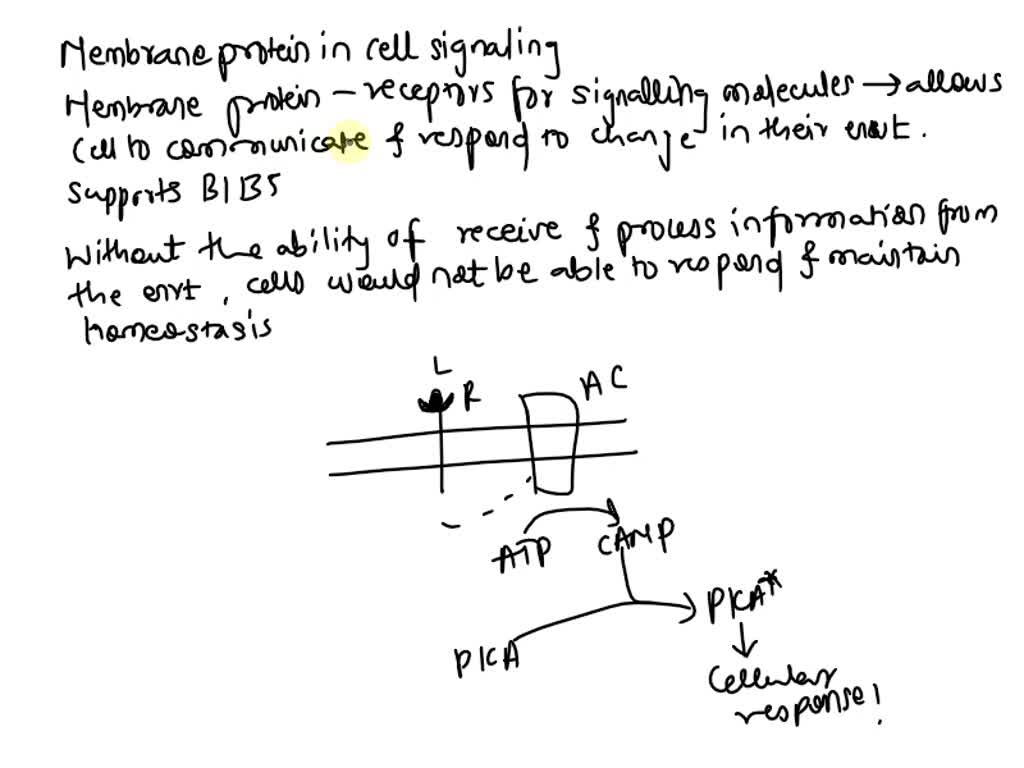 Membrane protein in cell signaling
Membrane protein – receptors for signalling molecules → allows
Cell to communicate & respond to change in their envt.
Supports B1B5
Without the ability of receive & process information from
the envt, cells would not be able to respond & maintain
homeostasis
L
R
AC
ATP
cAMP
PKA*
PKA
Cellular
response!